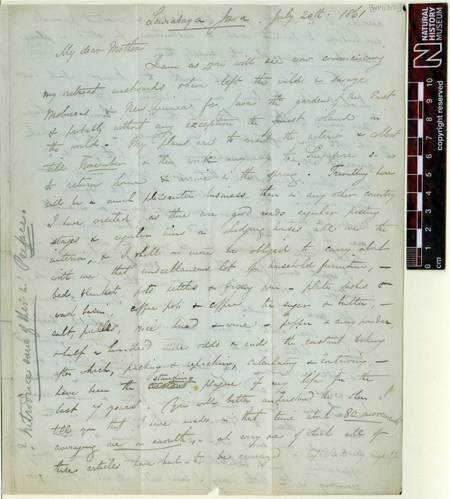 Sourabaya, Java. July 20th. 1861
My dear Mother
I am as you will see now commencing
my retreat westwards & have left the wild & savage
Moluccas & New Guinea for Java the garden of the East
& probably without any exception the finest island in
the world. My plans are to visit the interior & collect
till November & then work my way to Singapore so as
to return home & arrive in the spring. Travelling here
will be a much pleasanter business than in any other country
I have visited as there are good roads regular posting
stages & regular inns or lodging houses all over the
interior, & I shall no more be obliged to carry about
with me that miscellaneous lot of household furniture, –
bed, blankets pots kettles & frying pan – plates, dishes &
wash basin, coffee pots & coffee, tea sugar & butter, –
salt, pickles, rice bread & wine – pepper & curry powder
& half a hundred more odds & ends the constant looking
after which, packing & repacking, calculating & contriving, –
have been the standing plague of my life for the
last 7 years. You will better understand this when I
tell you that I have made in that time about 80 movements
averaging one a month, – at every one of which all of
these articles have had to be
? Introduce some of this in Preface.
NATURAL
HISTORY
MUSEUM
copyright reserved
cm 1 2 3 4 5 6 7 8 9 10